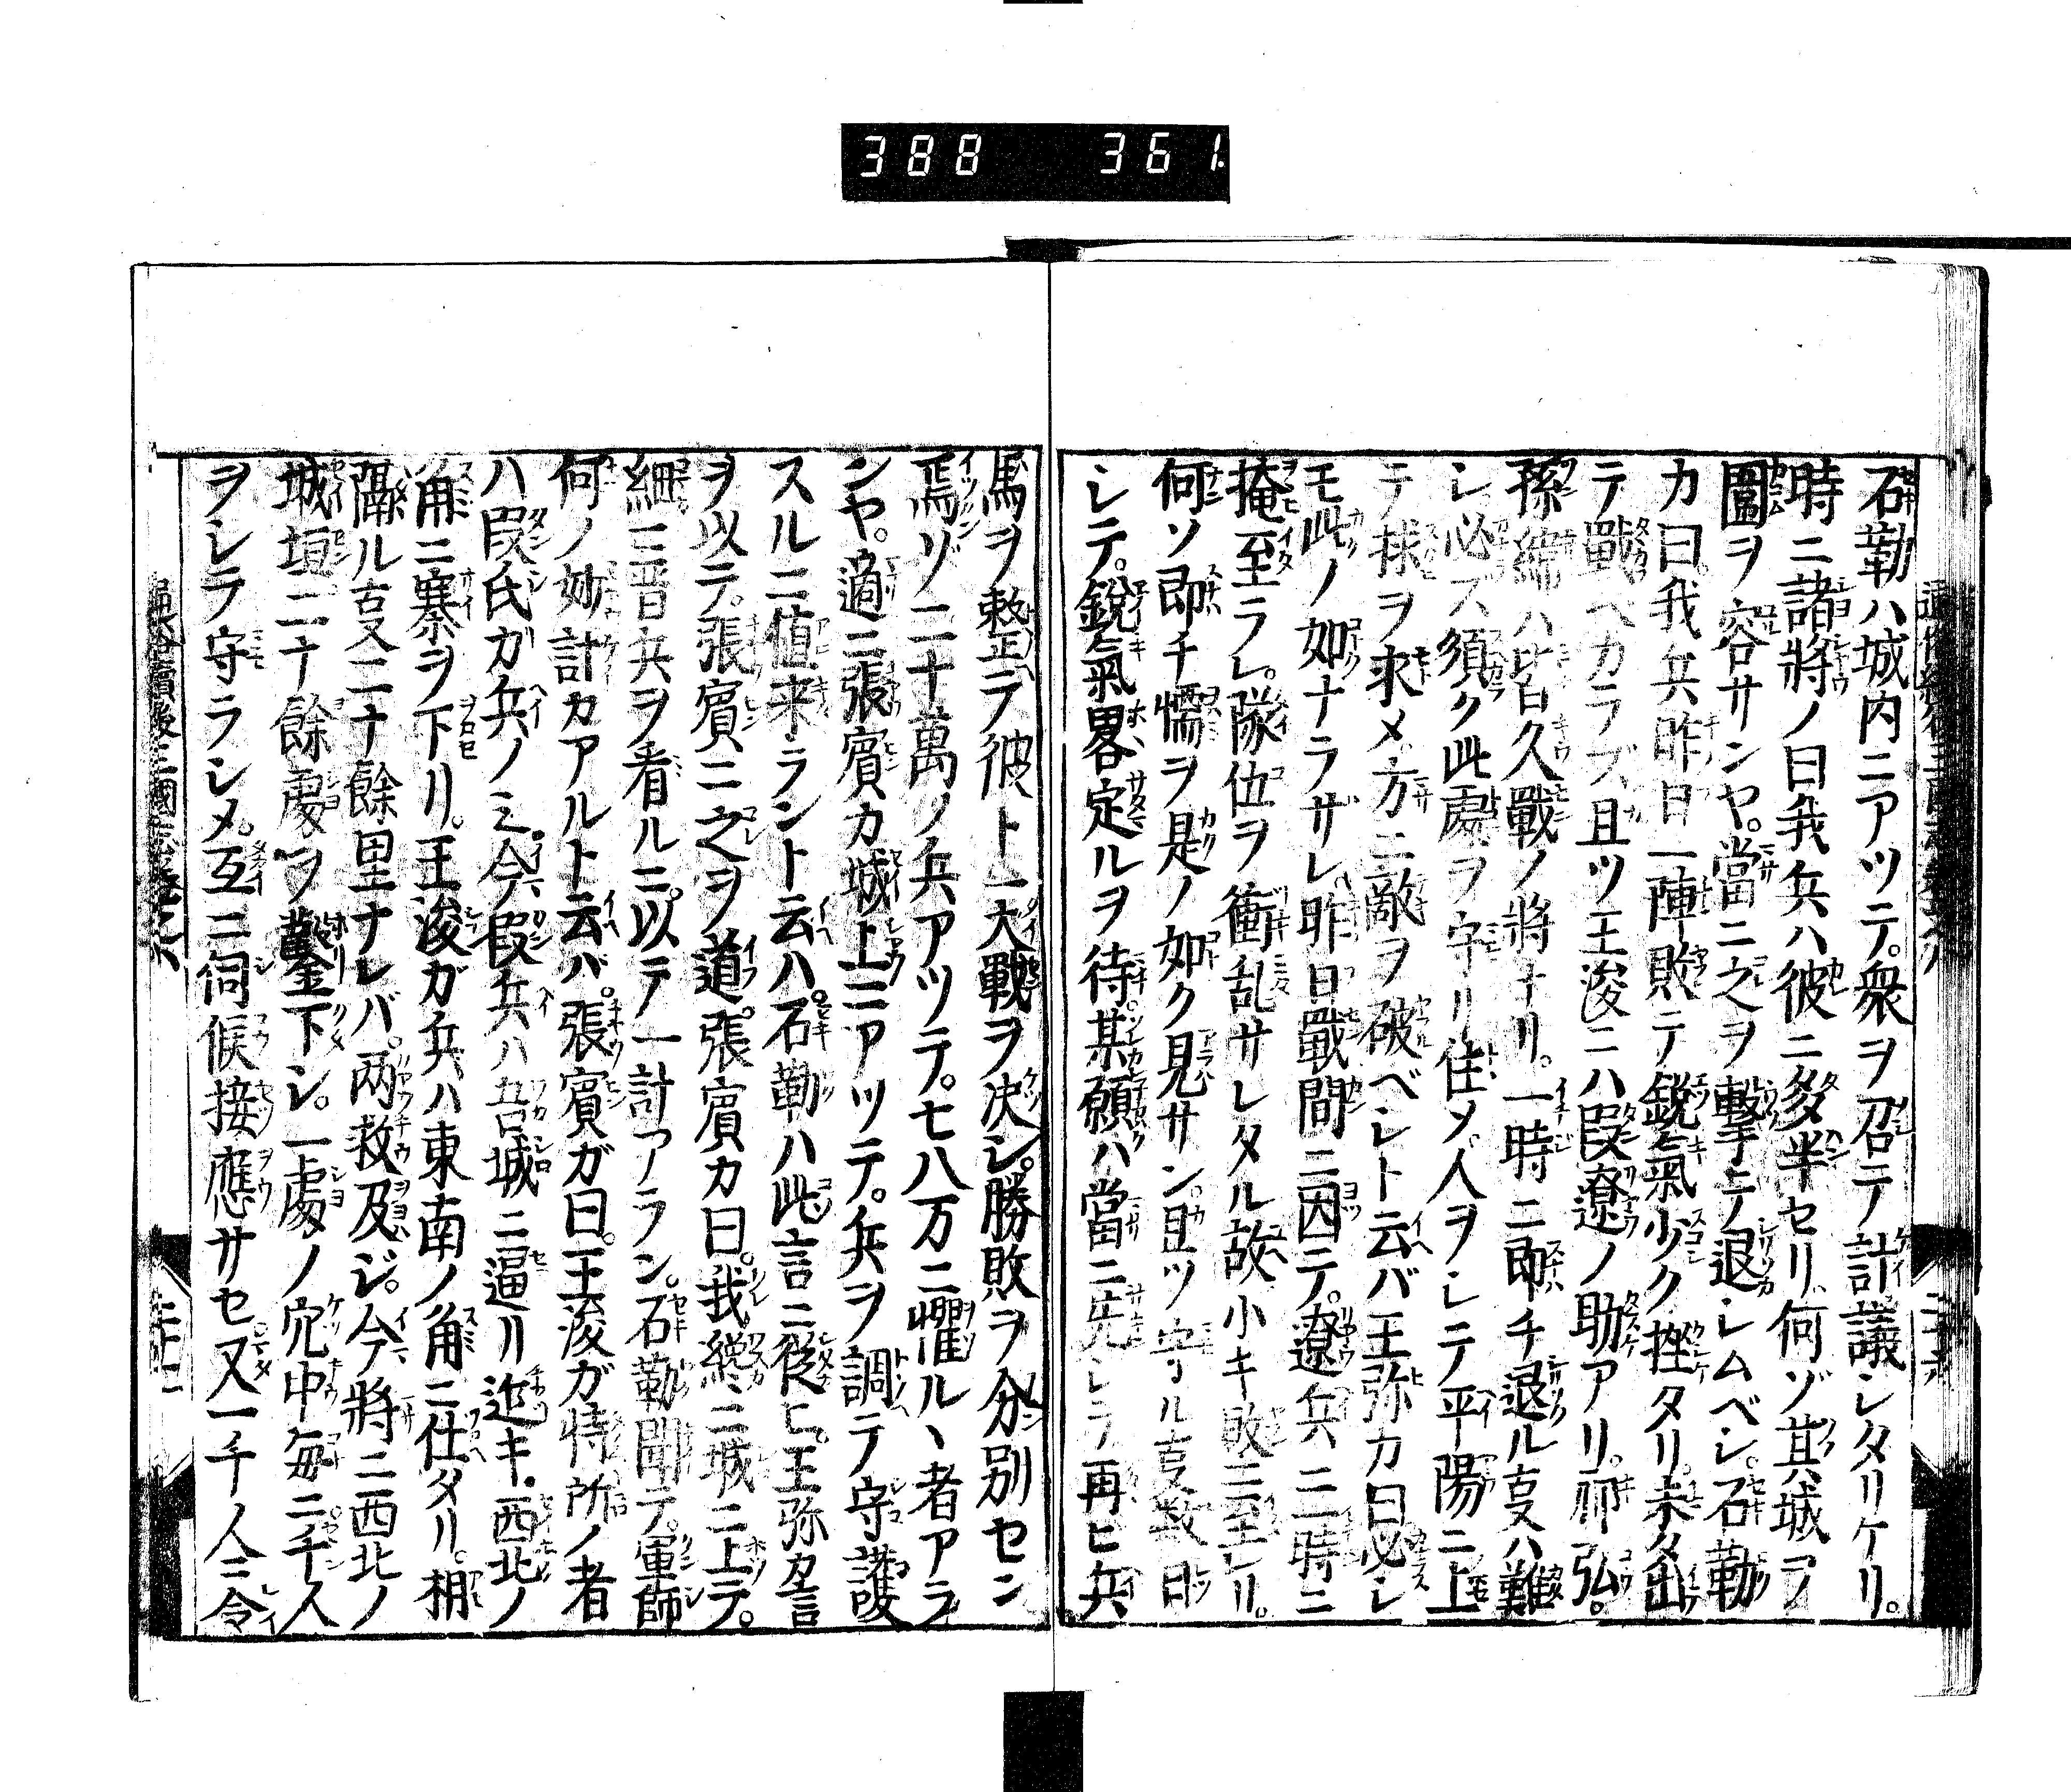 388 361
石勒ハ城内ニアツテ。衆ヲ召テ計議シタリケリ。
時ニ諸將ノ曰我兵ハ彼ニ多半セリ。何ゾ其城ヲ
圍ヲ容サンヤ。當ニ之ヲ擊テ退シムベシ。石勒
カ曰我兵昨日一陣敗テ鋭氣少ク挫タリ。未タ出
テ戰ベカラズ且ツ王浚ニハ叚遼ノ助アリ。祁弘。
孫緯ハ皆久戰ノ將ナリ。一時ニ即チ退ル叓ハ難
シ必ズ須ク此處ヲ守リ住メ。人ヲシテ平陽ニ上
テ救ヲ求メ。方ニ敵ヲ破ベシト云バ王弥カ曰必シ
モ此ノ如ナラザレ。昨日戰間ニ因テ。遼兵二時ニ
掩至ラレ。隊伍ヲ衝乱サレタル故。小キ敗ニ至レリ。
何ソ即チ懦ヲ是ノ如ク見サン。且ツ守ル叓数日
シテ。鋭氣畧定ルヲ待。某願ハ當ニ先シテ再ヒ兵
馬ヲ整テ彼ト一大戰ヲ决シ。勝敗ヲ分別セン
焉ゾ二十萬ノ兵アツテ。七八万ニ懼ルヽ者アラ
ンヤ。適ニ張賓カ城上ニアツテ。兵ヲ調テ守護
スルニ値来ラントト云ハ。石勒ハ此言ニ從ヒ。王弥カ言
ヲ以テ。張賓ニ之ヲ道。張賓カ曰。我纔ニ城ニ上テ。
細ニ晋兵ヲ看ルニ。以テ一計アラン。石勒聞テ。軍師
何ノ妙計カアルト云バ。張賓ガ曰。王浚ガ恃所ノ者
ハ叚氏ガ兵ノミ。今叚兵ハ吾城ニ逼リ近キ。西北ノ
角ニ寨ヲ下リ。王浚ガ兵ハ東南ノ角ニ仕タリ。相
隔ル叓二十餘里ナレバ。两救及ジ。今將ニ西北ノ
城垣二十餘處ヲ鑿下シ。一處ノ穴中毎ニ千人
ヲシテ守ラシメ。互ニ伺候接應サセ又一千ノ人ニ令